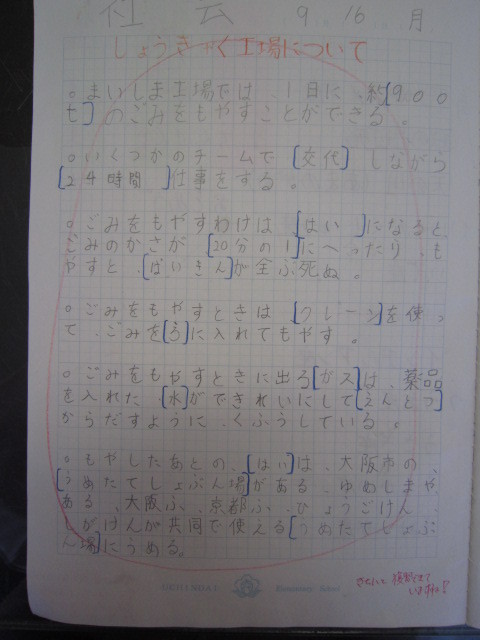 社会 9.16 月
しょうきゃく工場について
○まいしま工場では、1日に、約[900
t]のごみをもやすことができる。
○いくつかのチームで[交代]しながら
[24時間]仕事をする。
○ごみをもやすわけは、[はい]になると、
ごみのかさが、[20分の1]にへったり、も
やすと、[ばいきん]が全ぶ死ぬ。
○ごみをもやすときは、[クレーン]を使っ
て、ごみを[ろ]に入れてもやす。
○ごみをもやすときに出る[ガス]は、薬品
を入れた、[水]ができれいにして[えんとつ]
からだすように、くふうしている。
○もやしたあとの、[はい]は、大阪市の、
[うめたてしょぶん場]がある、ゆめしまや、
ある、大阪ふ、京都ふ、ひょうごけん、
しがけんが共同で使える[うめたてしょぶ
ん場]にうめる。